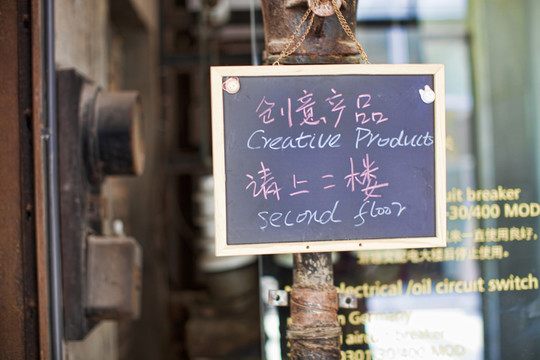 创意产品
Creative Products
请上二楼
second floor
uit breaker
30/400 MOD
来一直使用良好,
停止使用。
electrical /oil circuit switch
n Germany
air breaker